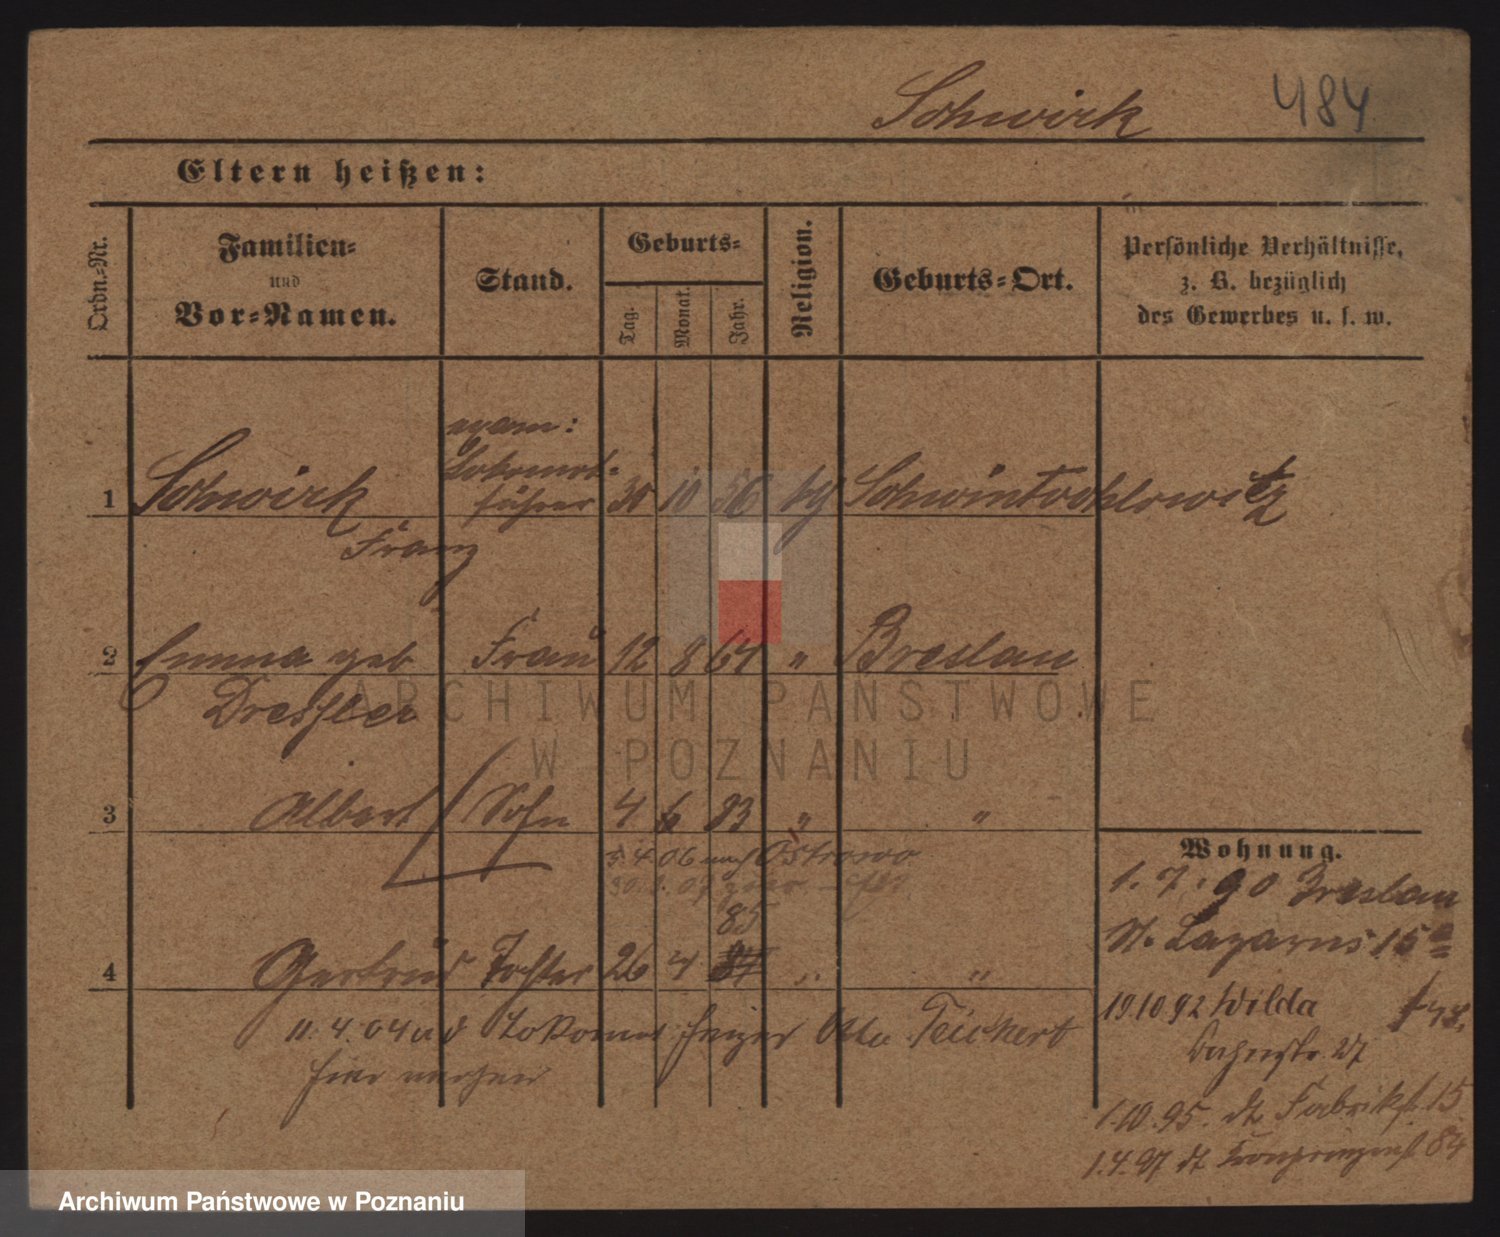 Schwirk 484
Eltern heißen:
Ordn.-Nr.
Familien-
und
Vor-Namen.
Stand.
Geburts-
Tag.
Monat.
Jahr.
Religion.
Geburts-Ort.
Persönliche Verhältnisse,
z. B. bezüglich
des Gewerbes u. s. w.
exam:
Lokomot-
1 Schwirk führer 30 10 56 kg Schwintochlowitz
Franz
2 Emma geb Frau 12 8 64 " Breslau
Dressler
ARCHIWUM PAŃSTWOWE
W POZNANIU
3 Albert Sohn 4 6 83 " "
5 4 06 nach Ostrowo
85
4 Gertrud Tochter 26 4 " "
11.4.04 Lokomot heizer Otto Teickert
hier
Wohnung.
1.7.90 Breslau
St. Lazarus 15a
19.10.92 Wilda
Bahnstr. 27
1.10.95. dt Fabrikst. 15
1.4.97 dt Kronprinzenst. 84
Archiwum Państwowe w Poznaniu